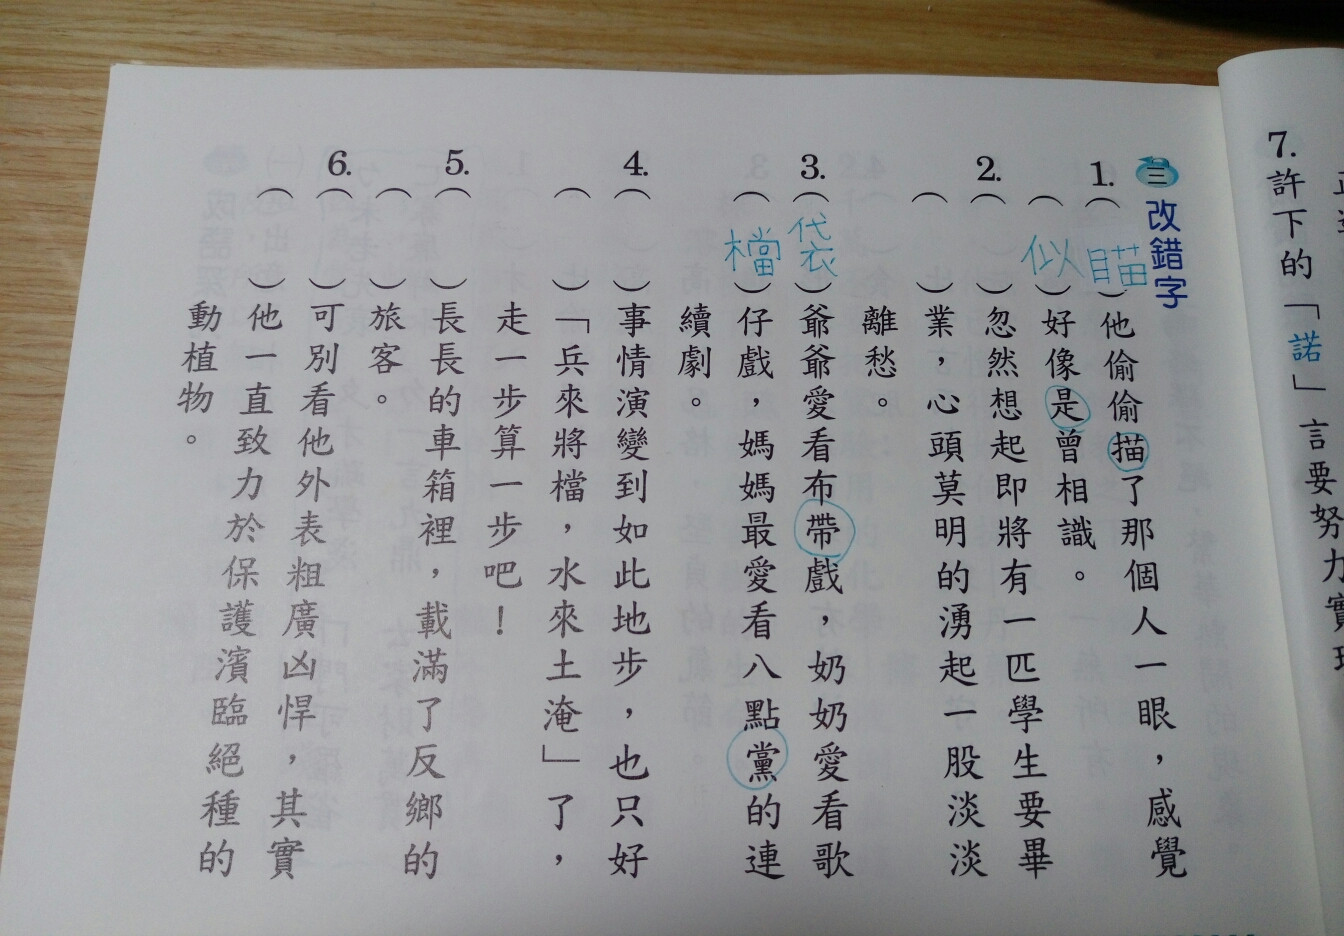 7.許下的「諾」言要努力實現
三 改錯字
1.（瞄）他偷偷描了那個人一眼，感覺
（似）好像是曾相識。
2.（　）忽然想起即將有一匹學生要畢
（　）業，心頭莫明的湧起一股淡淡
離愁。
3.（袋）爺爺愛看布帶戲，奶奶愛看歌
（檔）仔戲，媽媽最愛看八點黨的連
續劇。
4.（　）事情演變到如此地步，也只好
（　）「兵來將檔，水來土淹」了，
走一步算一步吧！
5.（　）長長的車箱裡，載滿了反鄉的
（　）旅客。
6.（　）可別看他外表粗廣凶悍，其實
（　）他一直致力於保護濱臨絕種的
動植物。